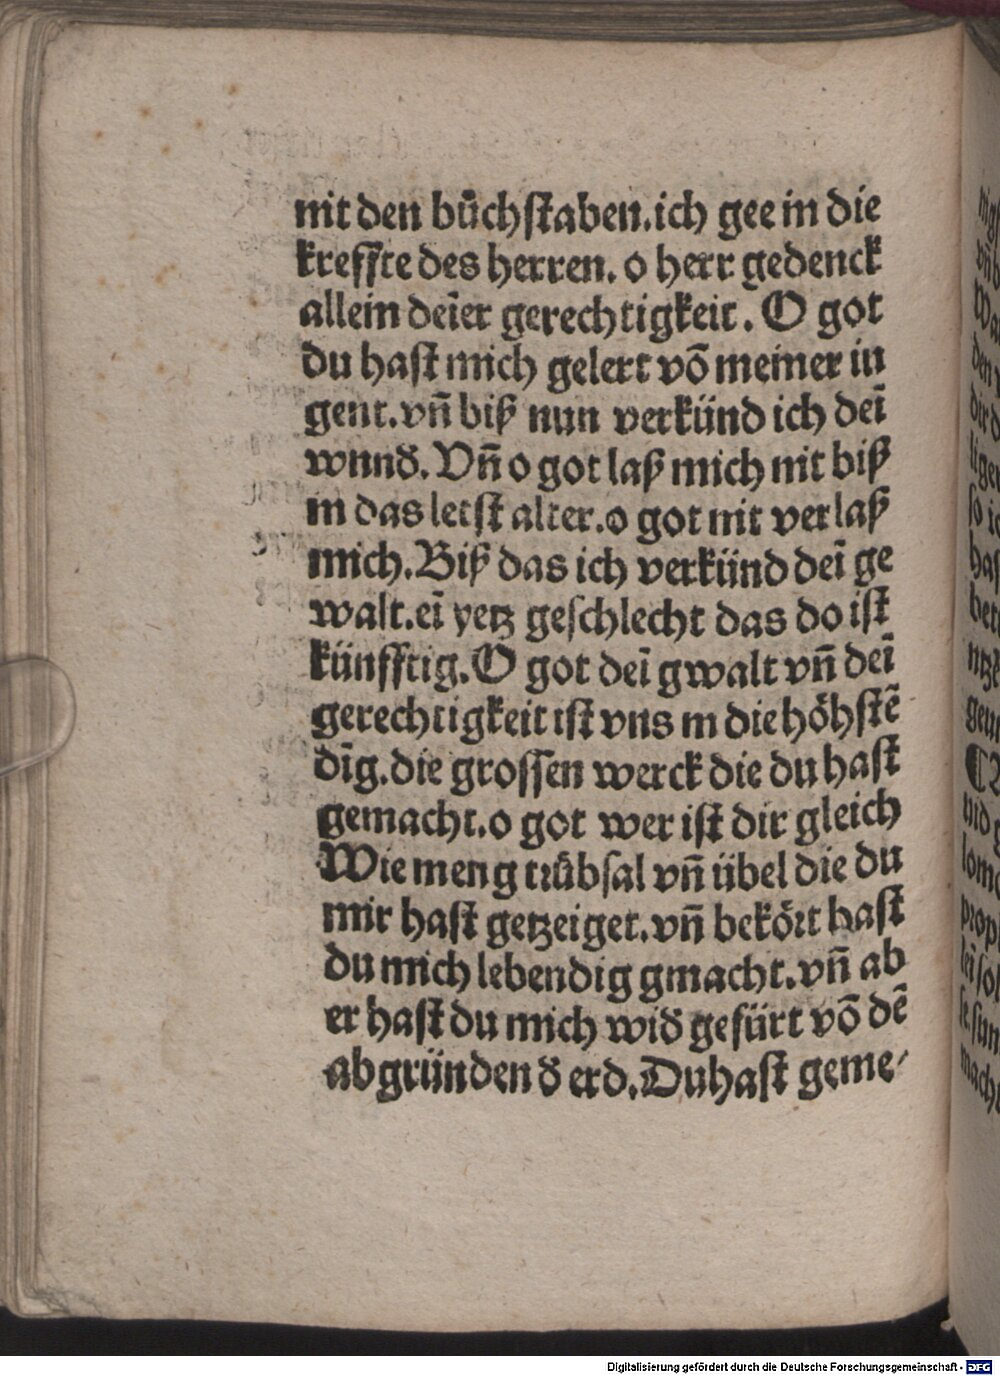 nit den bůchstaben.ich gee in die
kreffte des herren. o herr gedenck
allein deīer gerechtigkeit. O got
du hast mich gelert vō meiner iu
gent.vñ biß nun verkünd ich deī
wnnd̕. Vñ o got laß mich nit biß
in das letst alter.o got nit verlaß
mich. Biß das ich verkünd deī ge
walt.eī yetz geschlecht das do ist
künfftig. O got deī gwalt vñ deī
gerechtigkeit ist vns in die höhstē
dīg.die grossen werck die du hast
gemacht.o got wer ist dir gleich
Wie meng trůbsal vñ übel die du
mir hast getzeiget.vñ bekört hast
du mich lebendig gmacht.vñ ab
er hast du mich wid̕ gefürt vō dē
abgründen d̕ erd. Du hast geme⸗
Digitalisierung gefördert durch die Deutsche Forschungsgemeinschaft - DFG